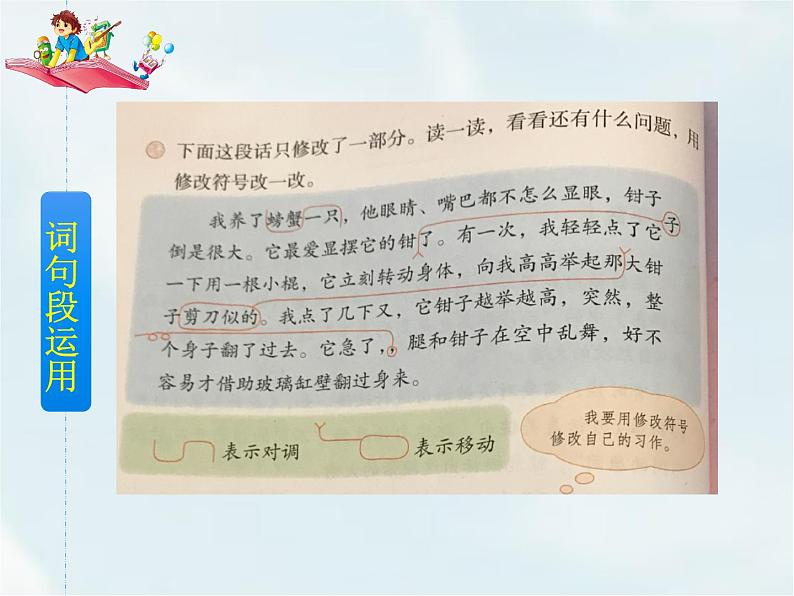 词句段运用
下面这段话只修改了一部分。读一读，看看还有什么问题，用
修改符号改一改。
我养了螃蟹一只，他眼睛、嘴巴都不怎么显眼，钳子
子
倒是很大。它最爱显摆它的钳了。有一次，我轻轻点了它
一下用一根小棍，它立刻转动身体，向我高高举起那大钳
子剪刀似的。我点了几下又，它钳子越举越高，突然，整
个身子翻了过去。它急了，，腿和钳子在空中乱舞，好不
容易才借助玻璃缸壁翻过身来。
表示对调
表示移动
我要用修改符号
修改自己的习作。